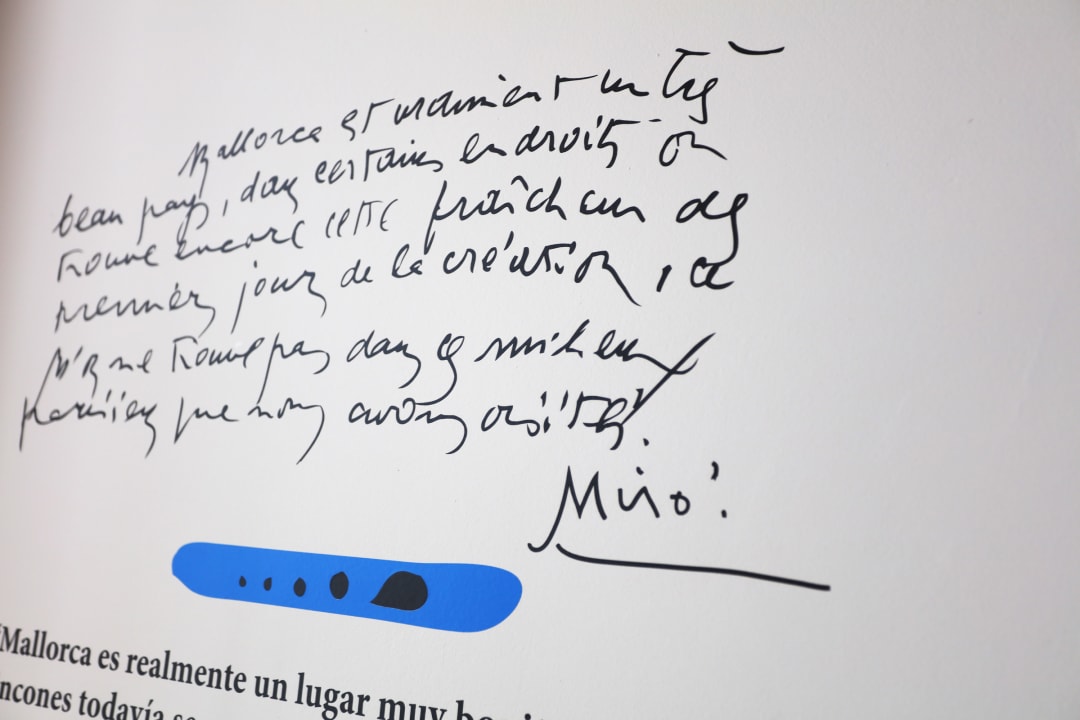 Mallorca est vraiment un très
beau pays, dans certains endroits on
trouve encore cette fraîcheur des
premiers jours de la création, ce
ne trouve pas dans ces milieux
parisiens que nous avons visités.
Miró.
Mallorca es realmente un lugar muy
ncones todavía se